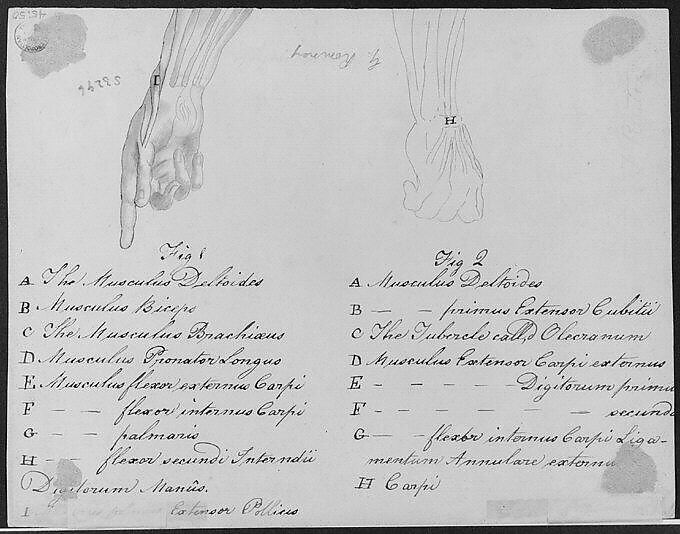 I
G. Romney
H
Fig 1
A The Musculus Deltoides
B Musculus Biceps
C The Musculus Brachiæus
D Musculus Pronator Longus
E Musculus flexor externus Carpi
F — — flexor internus Carpi
G — — palmaris
H — — flexor secundi Interndii
Digitorum Manûs.
I Extensor Pollicis
Fig 2
A Musculus Deltoides
B — — primus Extensor Cubitii
C The Tubercle call,d Olecranum
D Musculus Extensor Carpi externus
E — — — — Digitorum primu
F — — — — — — secundu
G — — flexor internus Carpi Liga-
mentum Annulare externu
H Carpi